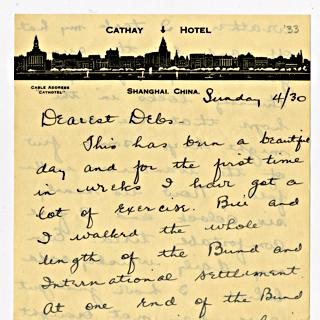 CATHAY HOTEL '33
CABLE ADDRESS
"CATHOTEL"
SHANGHAI, CHINA.
Sunday 4/30
Dearest Debs
This has been a beautiful
day and for the first time
in weeks I have got a
lot of exercise. Bill and
I walked the whole
length of the Bund and
International Settlement.
At one end of the Bund